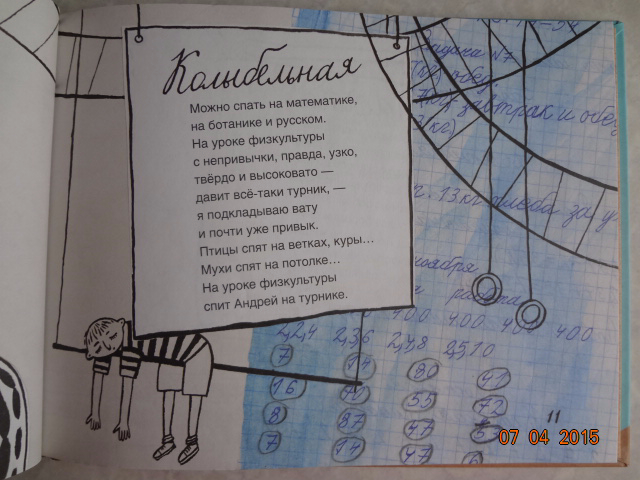 Колыбельная
Можно спать на математике,
на ботанике и русском.
На уроке физкультуры
с непривычки, правда, узко,
твёрдо и высоковато —
давит всё-таки турник, —
я подкладываю вату
и почти уже привык.
Птицы спят на ветках, куры...
Мухи спят на потолке...
На уроке физкультуры
спит Андрей на турнике.
Задача №7
завтрак и обе
кг)
13 кг хлеба за у
ноября
400 400 400
2,2,4 2,3,6 2,4,8 2,5,10
7 14 80 41
16 55 72
8 87 47
7 14 47
11
07 04 2015